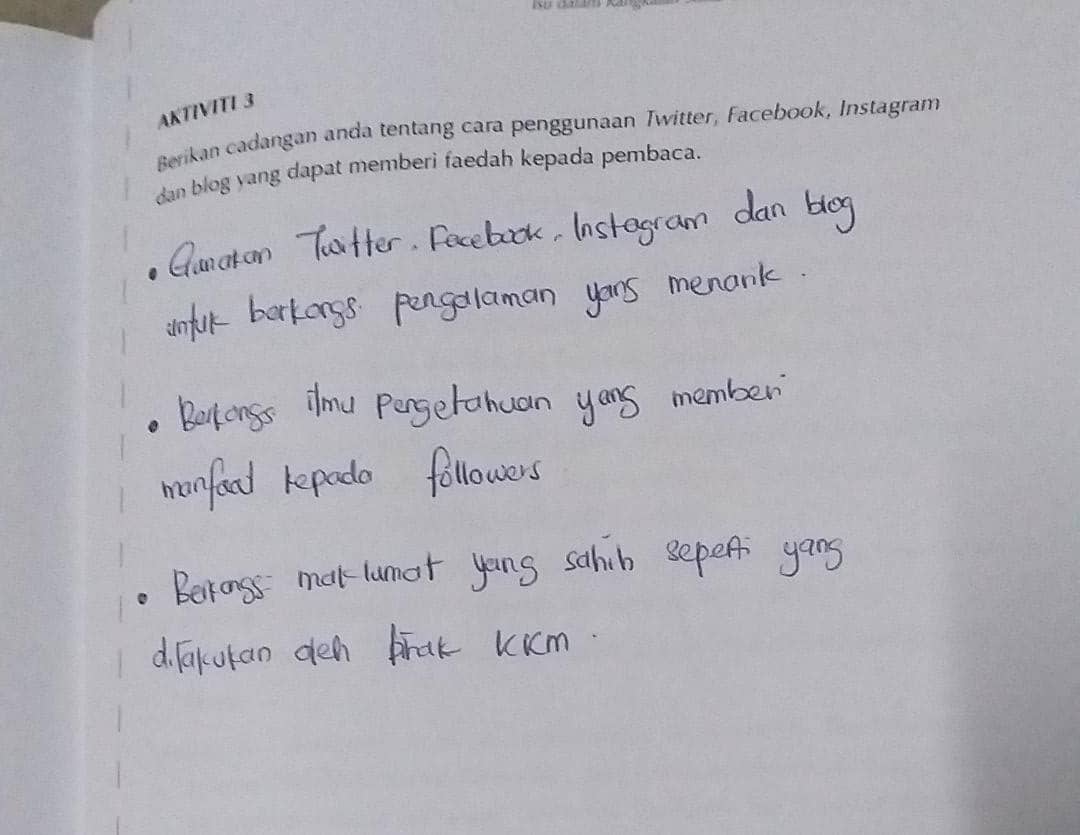 Isu dalam
AKTIVITI 3
Berikan cadangan anda tentang cara penggunaan Twitter, Facebook, Instagram
dan blog yang dapat memberi faedah kepada pembaca.
• Gunakan Twitter, Facebook, Instagram dan blog
untuk berkongsi pengalaman yang menarik.
• Berkongsi ilmu pengetahuan yang memberi
manfaat kepada followers
• Berkongsi maklumat yang sahih seperti yang
dilakukan oleh pihak KKM.